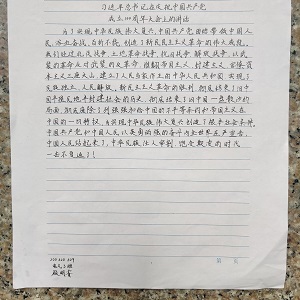 习近平总书记在庆祝中国共产党
成立100周年大会上的讲话
为了实现中华民族伟大复兴,中国共产党团结带领中国人
民,浴血奋战、百折不挠,创造了新民主主义革命的伟大成就。
我们经过北伐战争、土地革命战争、抗日战争、解放战争,以武
装的革命反对武装的反革命,推翻帝国主义、封建主义、官僚资
本主义三座大山,建立了人民当家作主的中华人民共和国,实现了
民族独立、人民解放。新民主主义革命的胜利,彻底结束了旧
中国半殖民地半封建社会的历史,彻底结束了旧中国一盘散沙的
局面,彻底废除了列强强加给中国的不平等条约和帝国主义在
中国的一切特权,为实现中华民族伟大复兴创造了根本社会条件。
中国共产党和中国人民以英勇顽强的奋斗向世界庄严宣告,
中国人民站起来了,中华民族任人宰割、饱受欺凌的时代
一去不复返了!
第 页